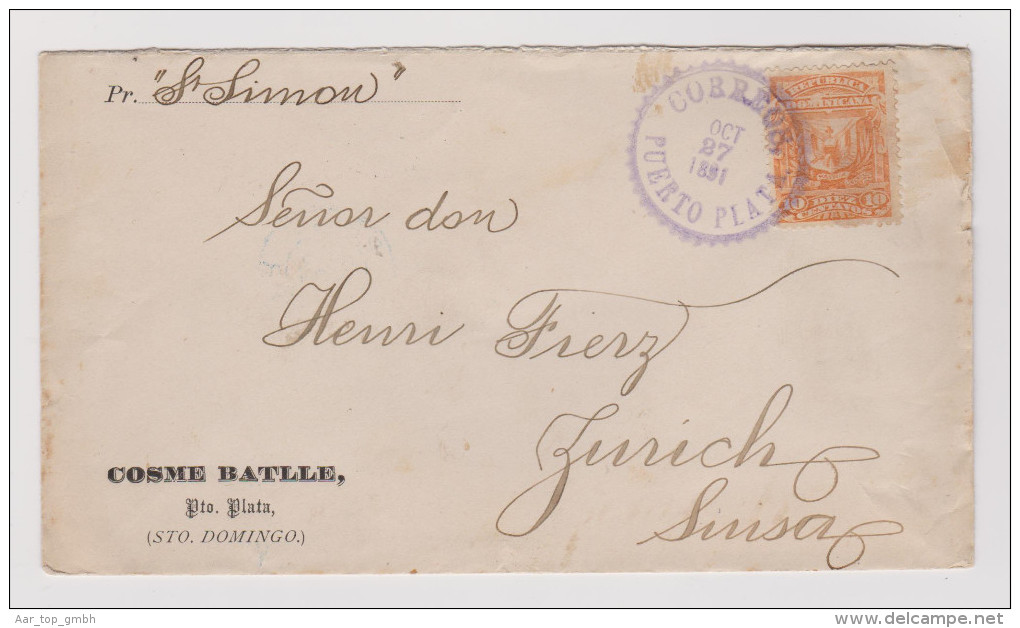 Pr. "St Simon"
CORREOS
OCT
27
1891
PUERTO PLATA
REPUBLICA
DOMINICANA
10 DIEZ 10
CENTAVOS
Señor don
Henri Fierz
Zurich
Suisa
COSME BATLLE,
Pto. Plata,
(STO. DOMINGO.)
Aar_top_gmbh
www.delcampe.net